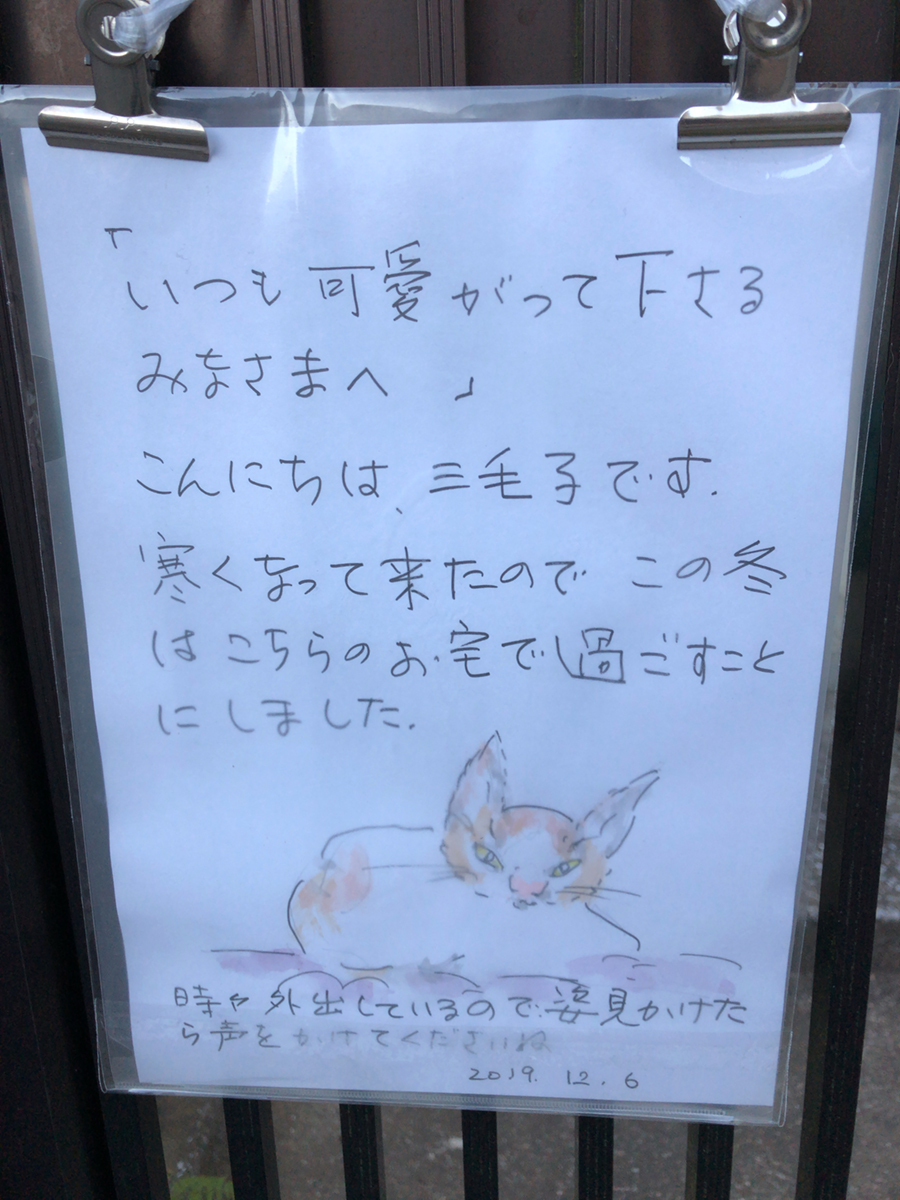 「いつも可愛がって下さる
みなさまへ 」
こんにちは、三毛子です.
寒くなって来たので この冬
はこちらのお宅で過ごすこと
にしました.
時々外出しているので姿見かけた
ら声をかけてくださいね
2019. 12. 6